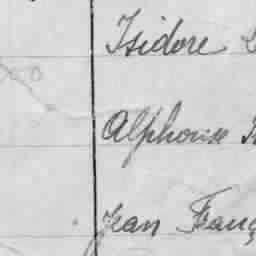 Isidore
Alphonse
Jean Franç